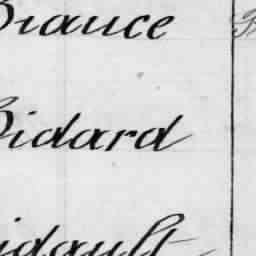 Biauce
Bidard
idault